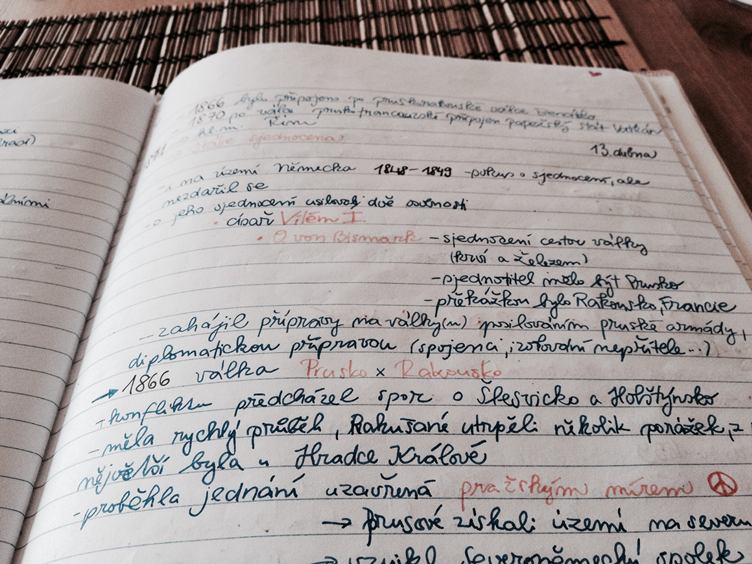 1866 bylo připojeno po pruskorakouské válce Benátsko
1870 po válce prusko francouzské připojen papežský stát Vatikán
hl. m. Řím
Itálie sjednocena
13. dubna
na území Německa 1848-1849 - pokus o sjednocení, ale
nezdařil se
- o jeho sjednocení usilovali dvě osobnosti
• císař Vilém I.
• O von Bismark - sjednocení cestou války
(krví a železem)
- sjednotitel mělo být Prusko
- překážkou bylo Rakousko, Francie
...zahájil přípravy na válku(u) posilováním pruské armády,
diplomatickou přípravou (spojenci, izolování nepřítele...)
→ 1866 válka Prusko x Rakousko
- konfliktu předcházel spor o Šlesvicko a Holštýnsko
- měla rychlý průběh, Rakušané utrpěli několik porážek, z
největší byla u Hradce Králové
- proběhla jednání uzavřená pražským mírem
→ prusové získali území na severu
→ vznikl Severoněmecký spolek